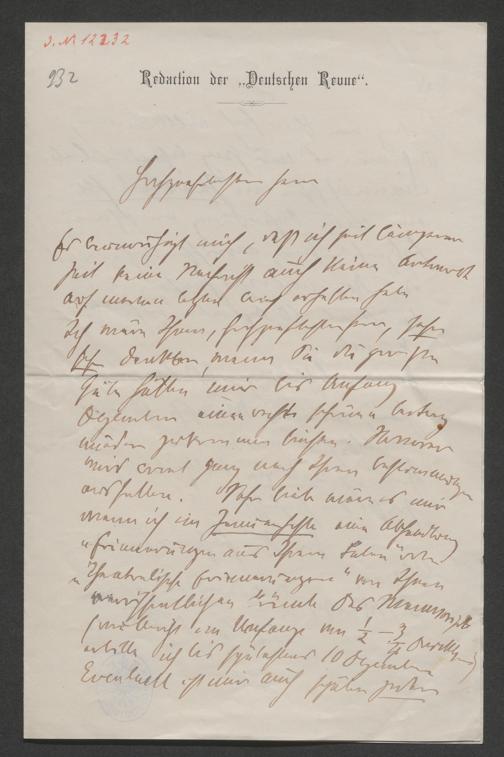 J. N. 12232
932
Redaction der „Deutschen Revue“.
Hochgeehrtester Herr
Es beunruhigt mich, daß ich seit längerer
Zeit keine Nachricht auch keine Antwort
auf meinen letzten erhalten habe
Ich wäre Ihnen, hochgeehrtester Herr, sehr
dankbar, wenn Sie die große
Güte hätten mir bis Anfang
Dezember einen recht schönen Beitrag
zukommen lassen. Honorar
wird ganz nach Ihren Bestimmungen
ausfallen. Sehr lieb wäre es mir
wenn ich im Januarhefte eine Abhandlung
„Erinnerungen aus Ihrem Leben“ oder
„Theatralische Erinnerungen“ von Ihnen
veröffentlichen könnte. Das Manuscript
(vielleicht im Umfange von ½ – ¾ Druckbogen)
erbitte ich bis spätestens 10 Dezember
Eventuell ist mir auch später jeder